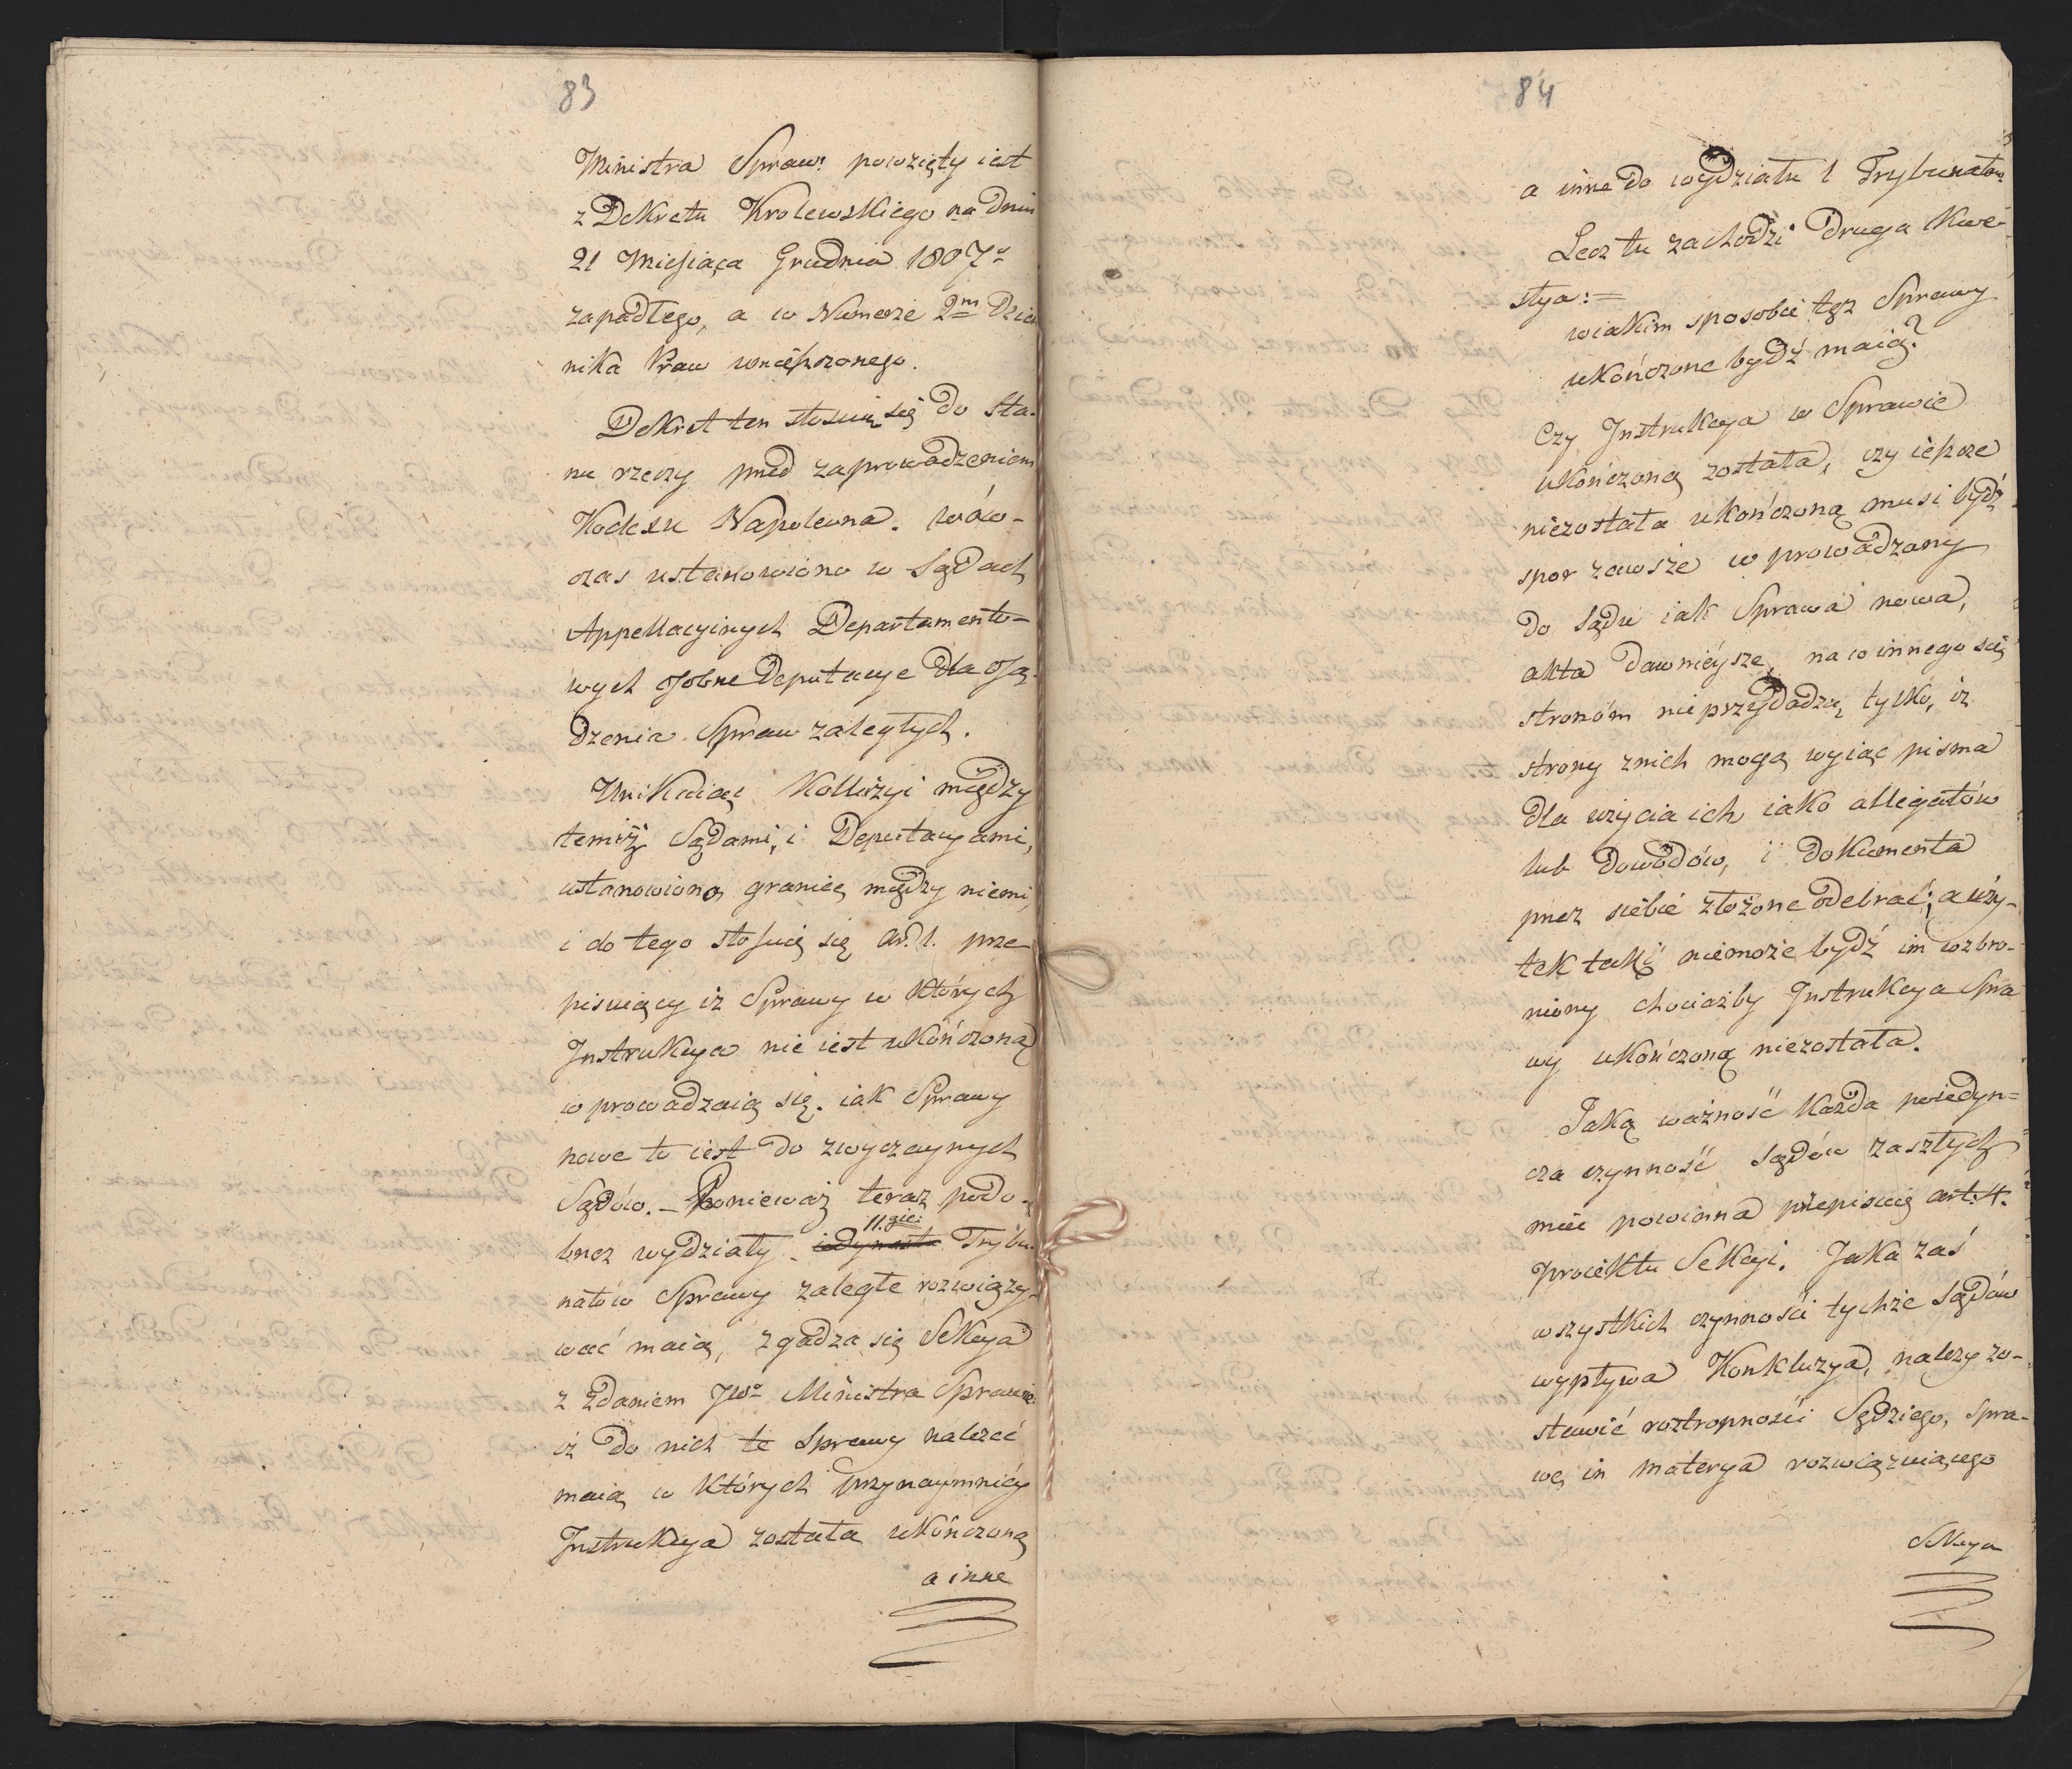 83
Ministra Spraw: powzięty iest
z Dekretu Krolewskiego na dniu
21 Miesiąca Grudnia 1807º
zapadłego, a w Numerze 2m Dzien
nika Praw umieszczonego.
Dekret ten stosuie się do sta-
nu rzeczy przed zaprowadzeniem
Kodexu Napoleona. wów-
czas ustanowiono w Sądach
Appellacyinych Departamento-
wych osobne Deputacye dla osą-
dzenia Spraw zaległych.
Unikaiąc Kollizyi między
temiż Sądami, i Deputacyami,
ustanowiono granicę między niemi,
i do tego stosuie się art. 1. prze
pisuiący iż Sprawy w których
Instrukcya nie iest ukończoną
wprowadzaią się. iak Sprawy
nowe to iest do zwyczaynych
Sądów. – Ponieważ teraz podo-
bnez wydziały 11.gie: Trybu-
natów Sprawy zaległe rozwiązy-
wać maią, zgadza się Sekcya
z zdaniem JWº Ministra Sprawie
iż do nich te Sprawy należeć
maią w których przynaymniéy
Instrukcya została ukończoną
a inne
84
a inne do wydziału 1 Trybunałów
Lecz tu zachodzi druga kwe-
stya:=
wiakim sposobie też Sprawy
ukończone bydź maią?
Czy Instrukcya w Sprawie
ukończoną została, czy ieszcze
niezostała ukończoną musi bydź
spor zawsze wprowadzony
do Sądu iak Sprawa nowa,
akta dawnieysze, na w innego się
stronóm nie przydadzą tylko, iż
strony znich mogą wyiąc pisma
dla użycia ich iako allegatów
lub dowodów, i dokumenta
przez siebie złożone odebrać; a uży-
tek taki niemoże bydź im wzbro-
niony chociażby Instrukcya Spra
wy ukończoną niezostała.
Jaką ważność każda poiedyn=
cza czynność Sądów zaszłych
mieć powinna przepisuie art: 4.
proiektu Sekcyi. Jaka zaś
wszystkich czynności tychże Sądów
wypływa Konkluzya, należy zo-
stawić roztropności Sędziego, Spra-
wę in materya rozwiązuiącego
Sekcya